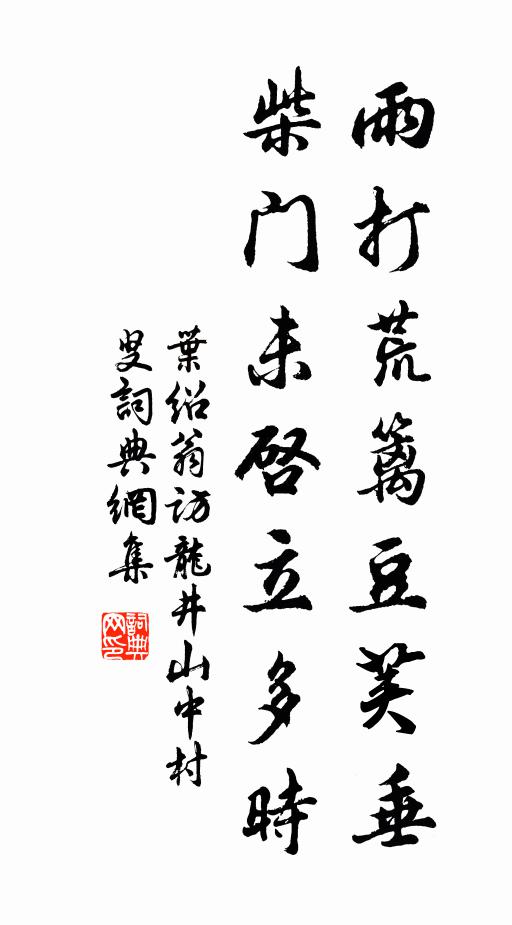 雨打荒籬豆荚垂
柴门未啓立多時
葉紹翁訪龍井山中村
叟詞典網集
詞典
网印